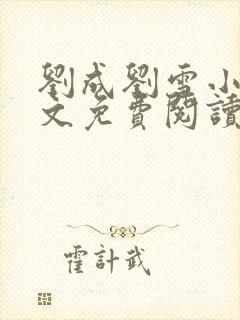 劉成劉雪小
文免費閱讀
霍計武